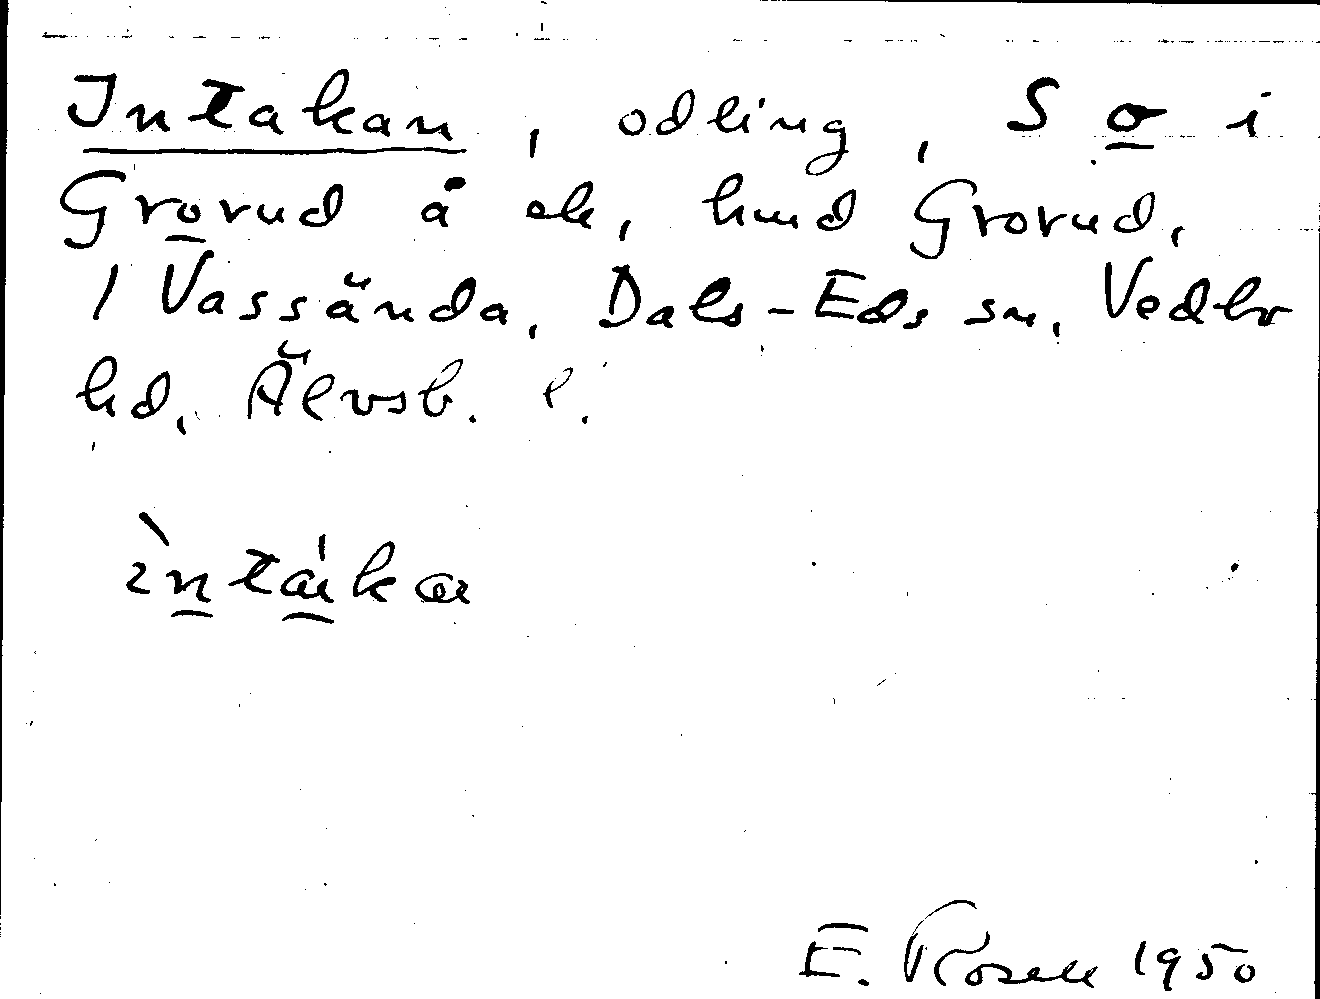 Intakan, odling, S o i
Grorud å ek, hmd Grorud,
1 Vassända, Dals-Eds sn, Vedbo
hd, Älvsb. l.
ìntáka
E. Rosell 1950